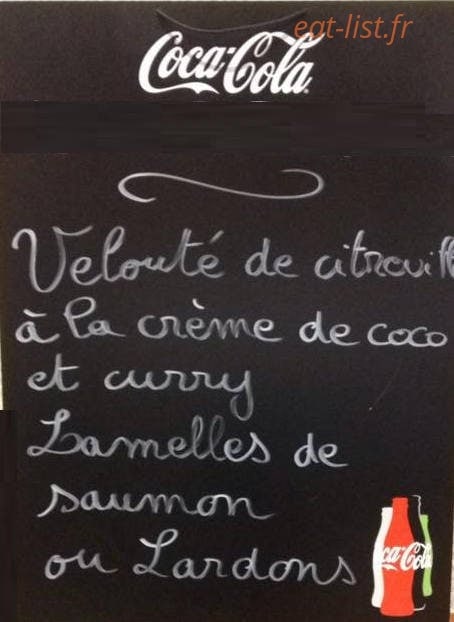 eat-list.fr
Coca-Cola
Velouté de
à la crème de coco
et curry
Lamelles de
saumon
ou Lardons
ca-Col